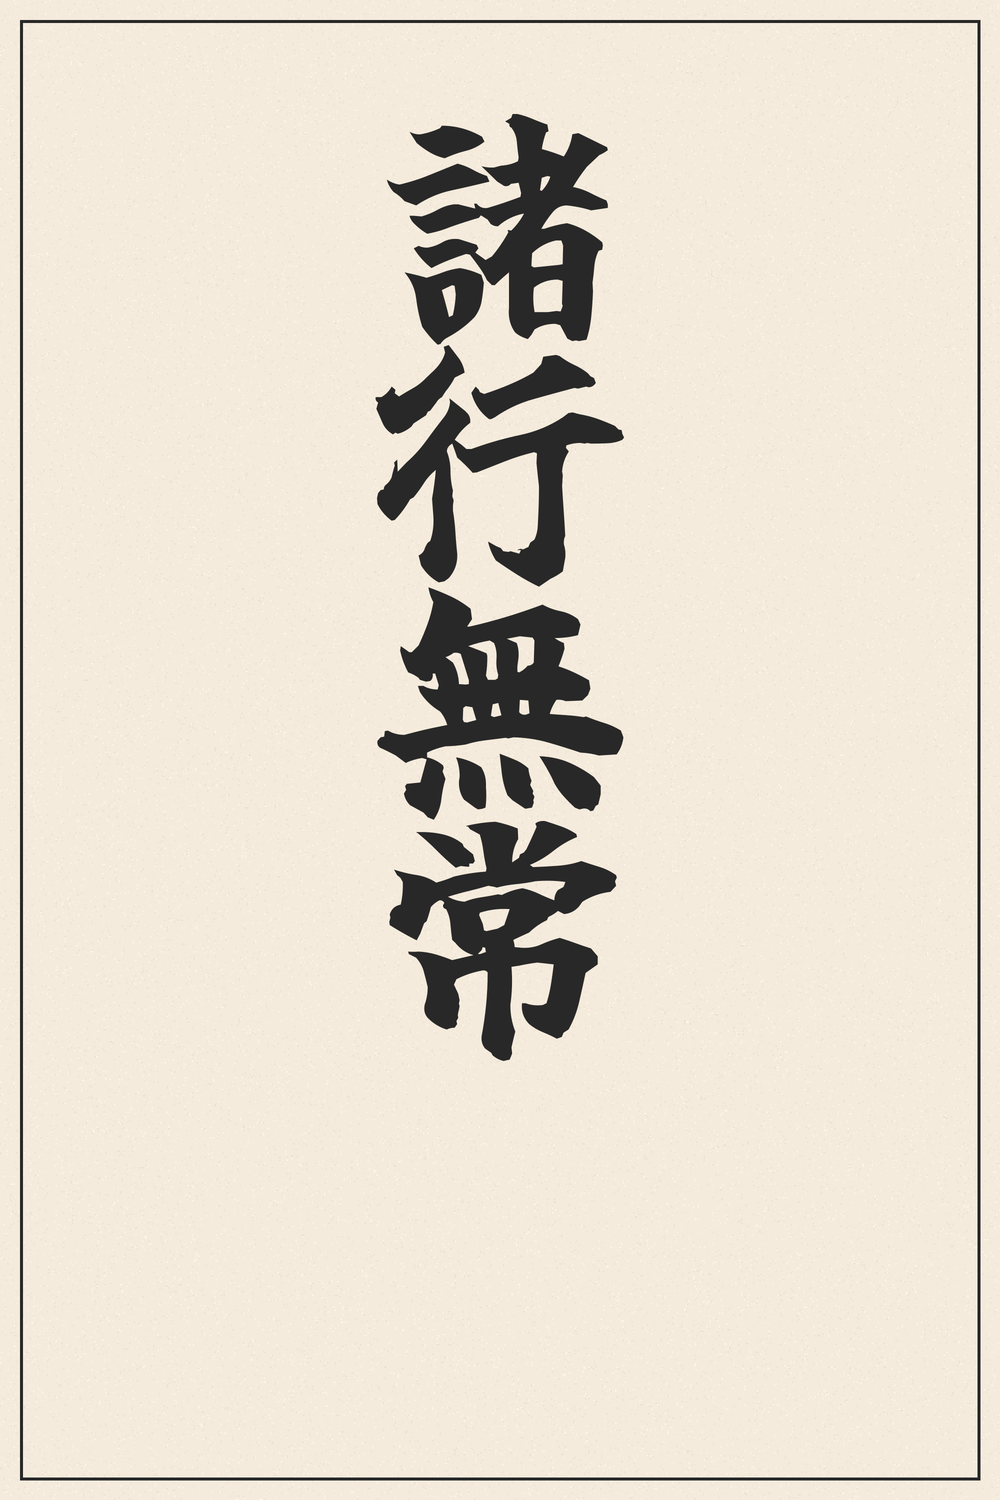 諸行無常